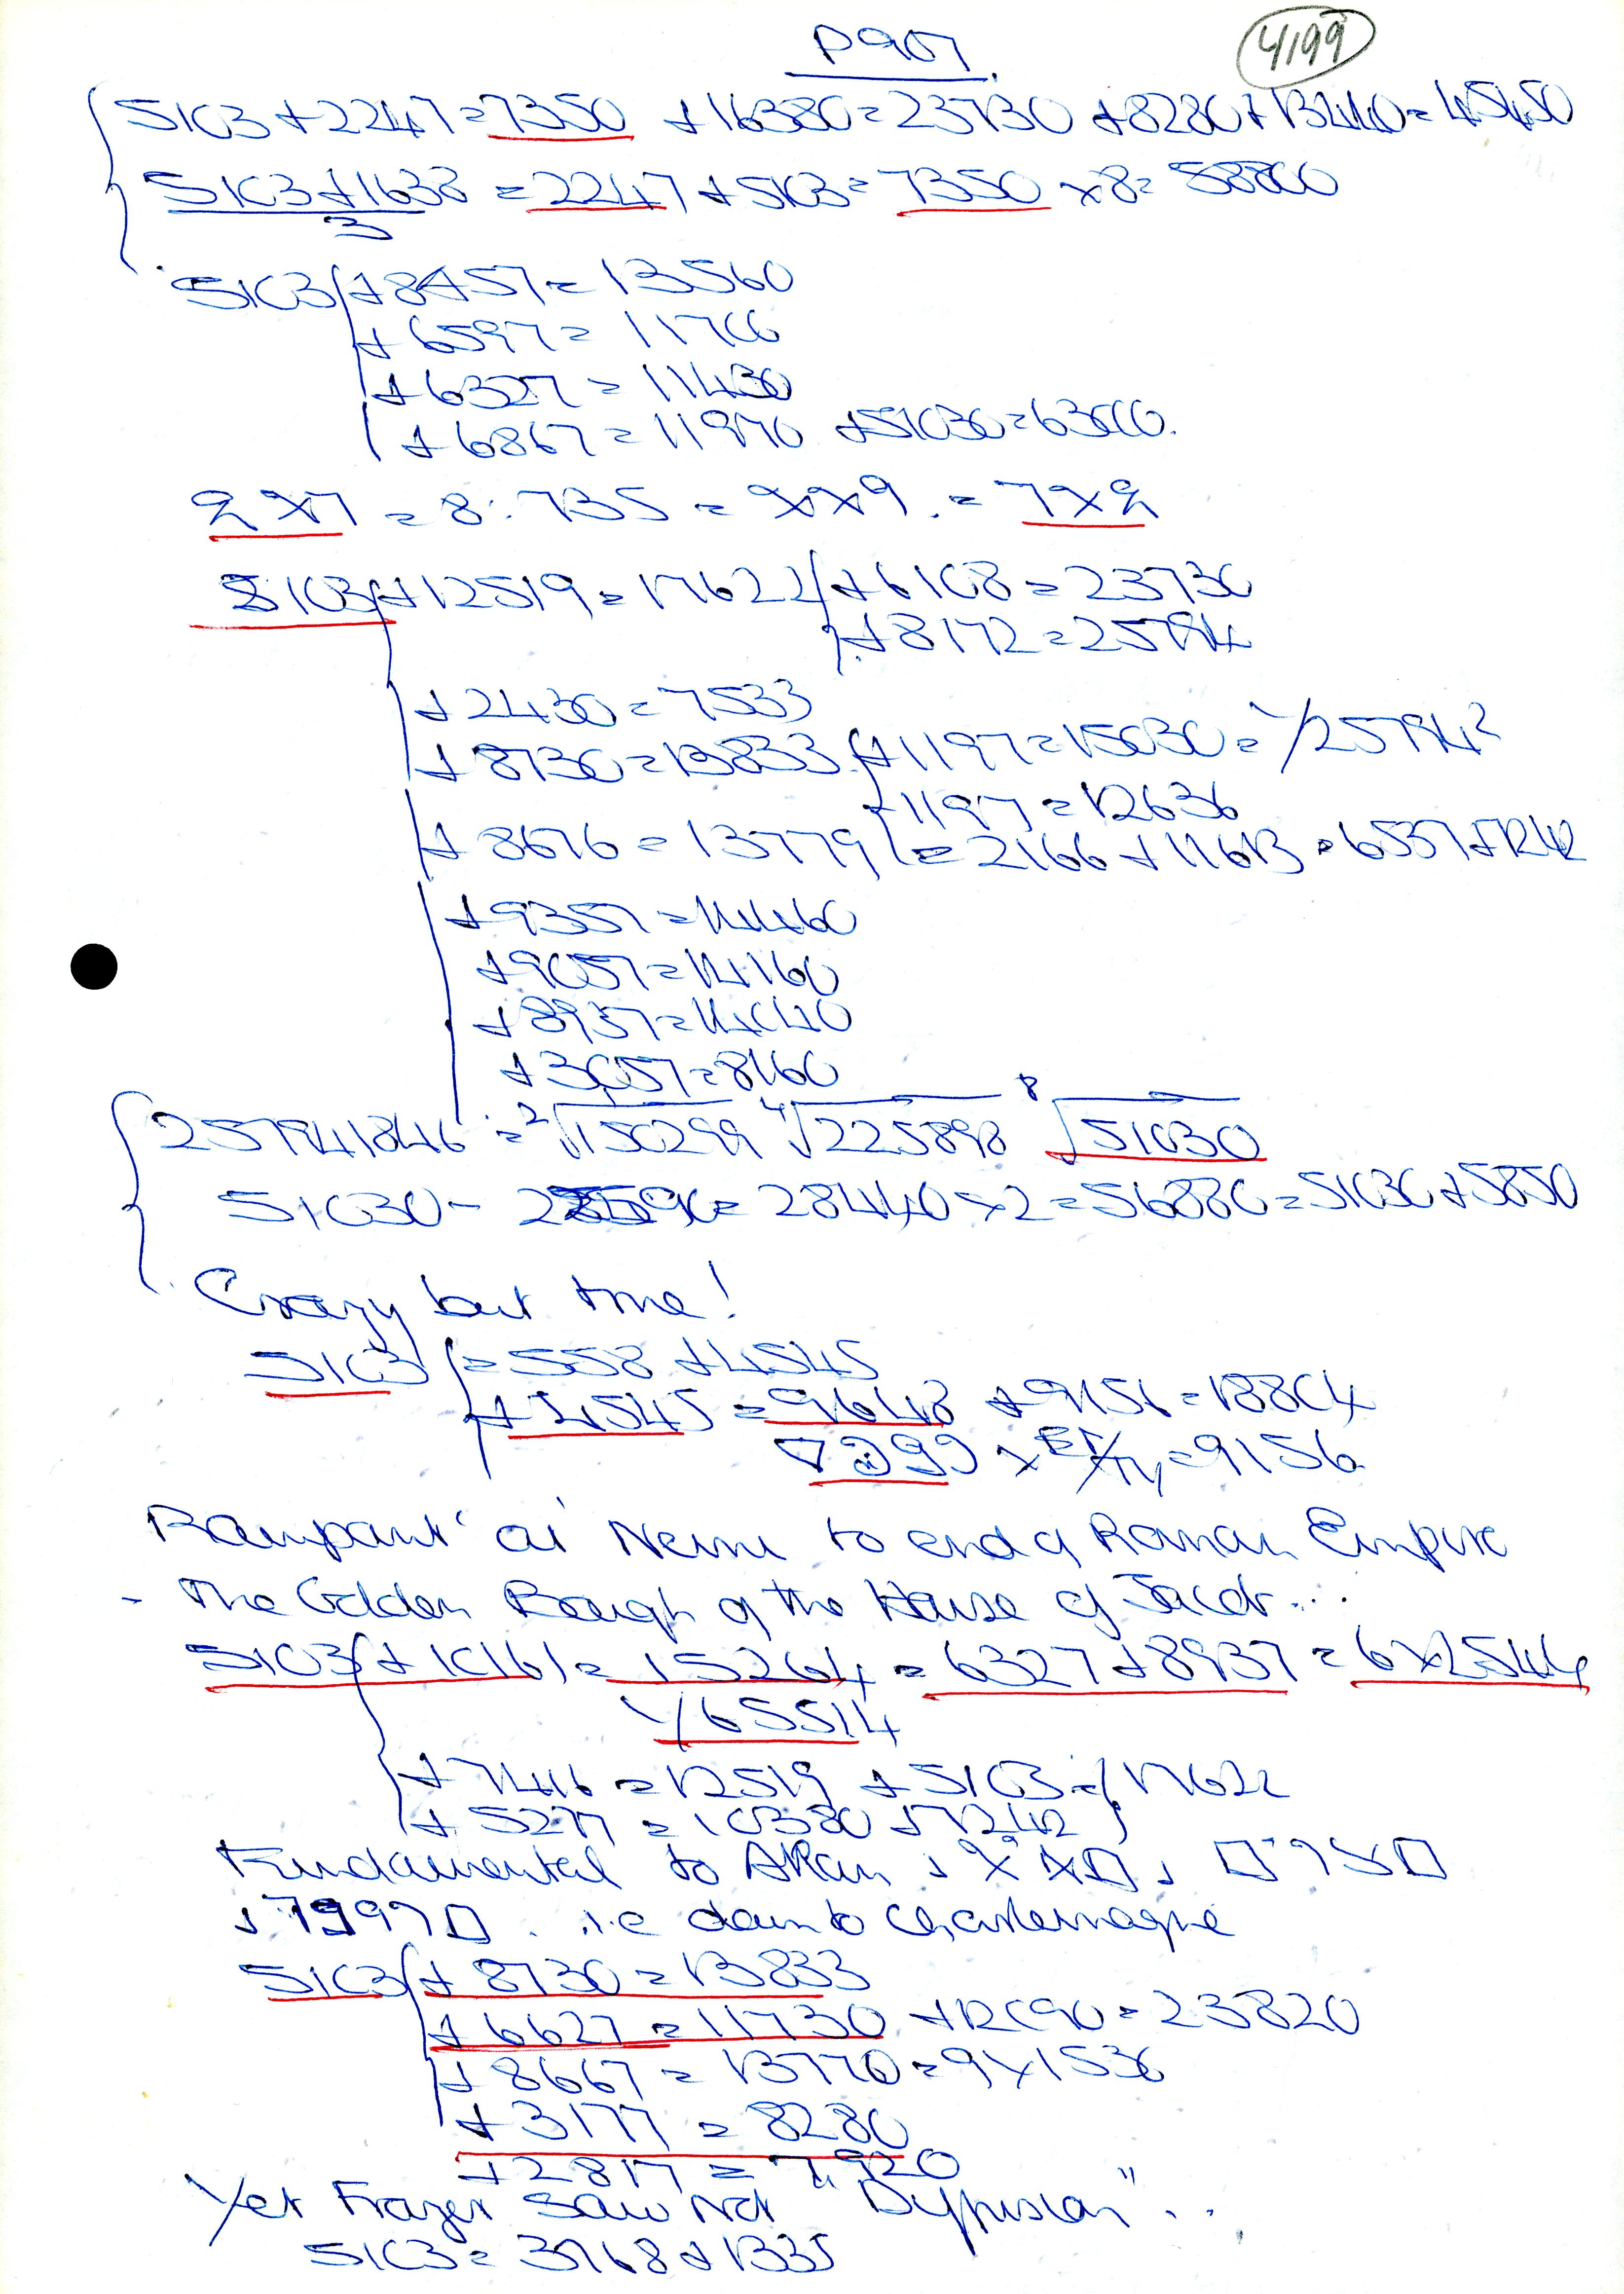 P907.
4199
5103 + 2247 = 7350 + 16380 = 23730 + 8280 + 13440 = 45450
5103 + 1638 = 2247 + 5103 = 7350 × 8 = 58800
3
5103 + 8457 = 13560
+ 6597 = 11700
+ 6327 = 11430
+ 6867 = 11970 + 51030 = 63000.
= 8 : 735 =
5103 + 12519 = 17622 + 6108 = 23730
+ 8172 = 25794
+ 2430 = 7533
+ 8730 = 13833 + 1197 = 15030 = √25794²
- 1197 = 12636
+ 8676 = 13779 = 2166 + 11613 = 6537 + 7242
+ 9357 = 14460
+ 9057 = 14160
+ 8937 = 14040
+ 3057 = 8160
257941846 = ²√150299 ⁴√225898 ⁸√51030
51030 - 22590 = 28440 × 2 = 56880 = 51030 + 5850
Crazy but true!
5103 = 558 + 4545
+ 4545 = 9648 + 9156 = 18804
= 9156
Rampant at Nemi to end of Roman Empire
- The Golden Bough of the House of Jacob...
5103 + 10161 = 15264 = 6327 + 8937 = 6 × 2544
√65514
+ 7416 = 12519 + 5103 = 17622
+ 5277 = 10380 + 7242
Fundamental to
i.e down to Charlemagne
5103 + 8730 = 13833
+ 6627 = 11730 + 12090 = 23820
+ 8667 = 13770 = 9 × 1530
+ 3177 = 8280
+ 2817 = 7920
Yet Frazer saw not "Diffusion"...
5103 = 3768 + 1335